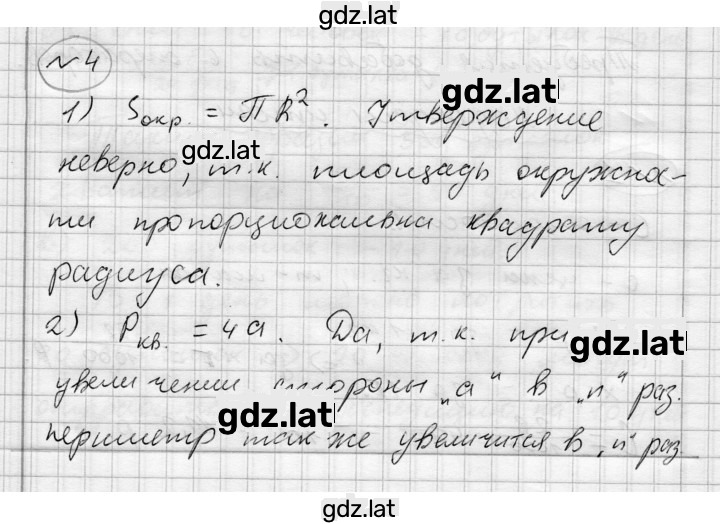 gdz.lat
№4
gdz.lat
1) Sокр. = ПR². Утверждение
gdz.lat
неверно, т.к. площадь окружнос-
ти пропорциональна квадрату
радиуса.
2) Pкв. = 4a. Да, т.к. при
gdz.lat
увеличении стороны „a“ в „n“ раз.
gdz.lat
периметр так же увеличится в „n“ раз
gdz.lat